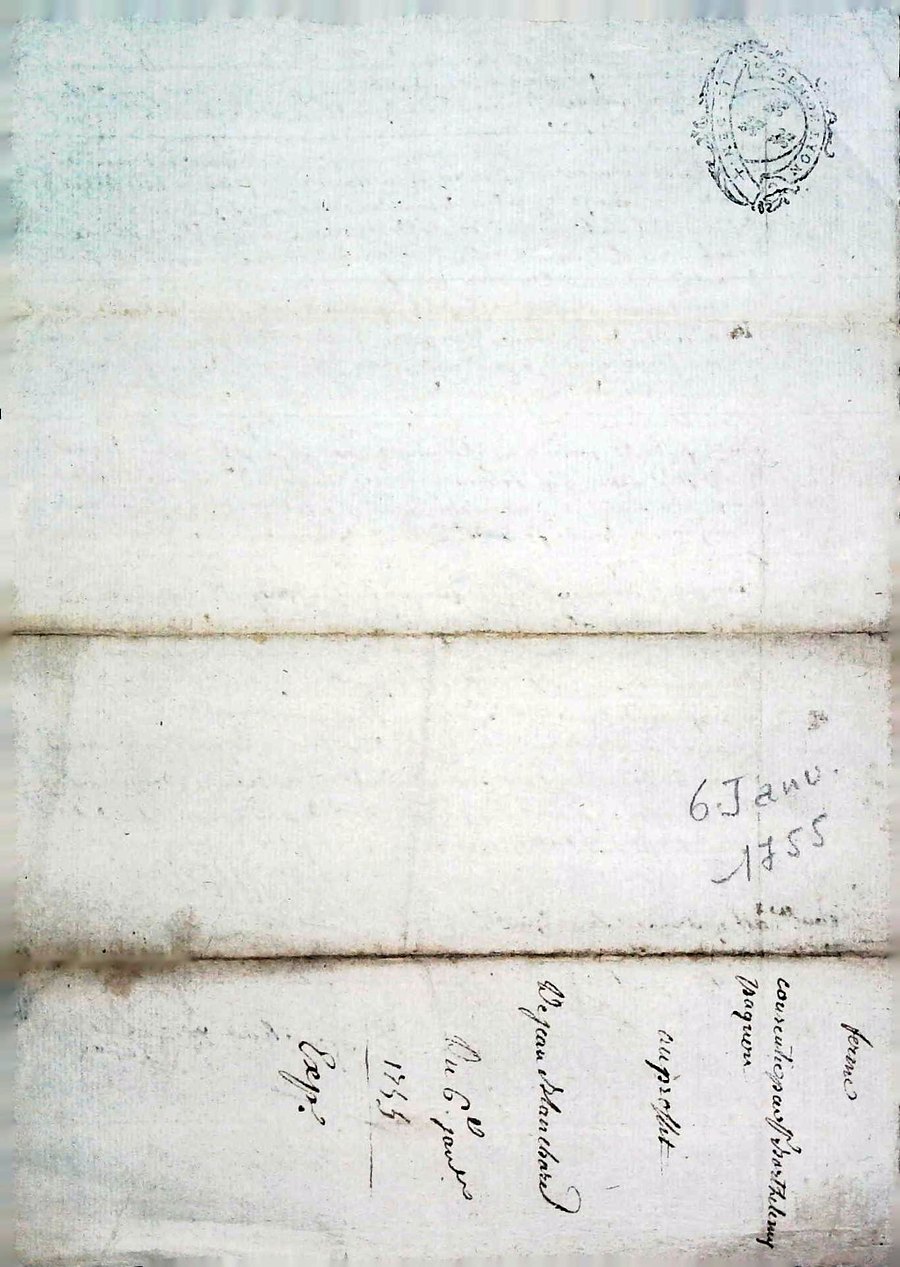 GEN DE LYON
6. Janv.
1755
ferme
consentie par Sr Barthelemy
paquon
au proffit
De jean Blanchard
Du 6e janvr
1755
Exp.